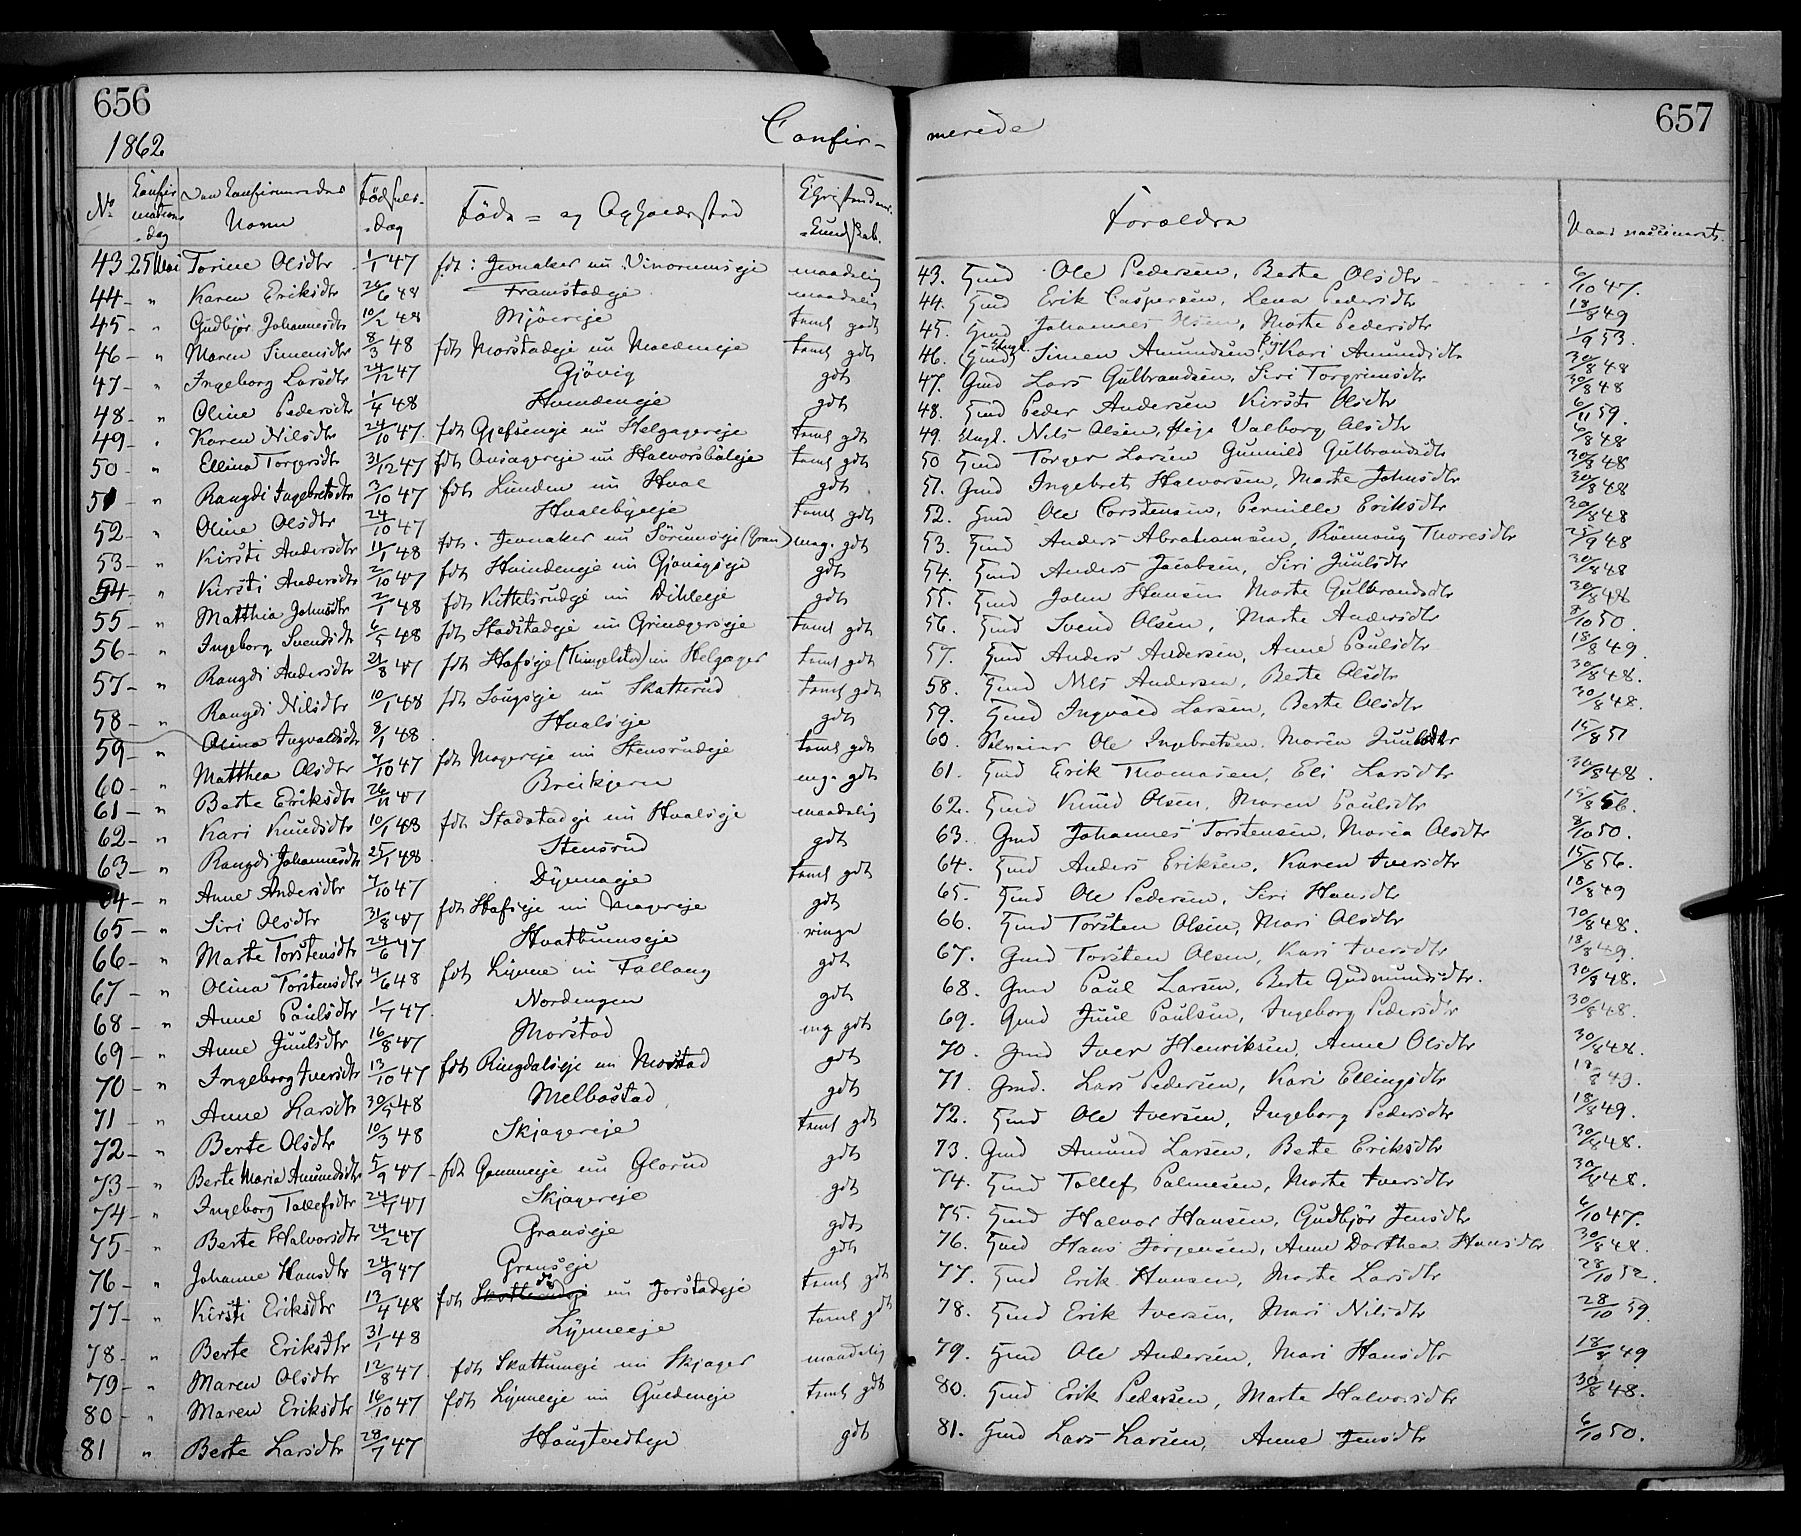 656
1862
Confir-
No | Confirmations-dag | Den Confirmeredes Navn | Fødsels-dag | Føde- og Opholdssted | Christendoms-Kundskab.
43 25 Mai Torine Olsdtr 1/1 47 fdt: Jevnaker nu Vinorumseje maadelig
44 - " Karen Eriksdtr 26/6 48 Framstadeje maadelig
45 - " Gudbjør Johannesdtr 10/2 48 Mjöereje taml godt
46 - " Maren Simensdtr 8/3 48 fdt Morstadeje nu Moldeneje taml gdt
47 - " Ingeborg Larsdtr 24/12 47 Gjövig gdt
48 - " Oline Pedersdtr 1/4 48 Hvindeneje gdt
49 - " Karen Nilsdtr 24/10 47. fdt Gjefseneje nu Helgagereje taml gdt
50 - " Ellina Torgersdtr 31/12 47 fdt Onsagereje nu Halvorsböleje taml gdt
51 - " Rangdi Ingebretsdtr 3/10 47 fdt Lunden nu Hval gdt
52 - " Oline Olsdtr 24/10 47 Hvalebyeje taml gdt
53 - " Kirsti Andersdtr 11/1 48 fdt. Jevnaker nu Sörumseje (Gran) mag. gdt
54 - " Kirsti Andersdtr 2/10 47 fdt Hvindeneje nu Gjövigeje gdt
55 - " Matthia Johnsdtr 2/1 48 fdt Kittelsrudeje nu Dihleeje gdt
56 - " Ingeborg Svendsdtr 6/5 48 fdt Stadstadeje nu Grinagerseje taml gdt
57 - " Rangdi Andersdtr 21/8 47 fdt Hofseje (Tingelstad) nu Helgager taml gdt
58 - " Rangdi Nilsdtr 10/1 48 fdt Sougseje nu Skatterud taml gdt
59 - " Olina Ingvaldsdtr 8/1 48 Hvalseje gdt
60 - " Matthea Olsdtr 7/10 47 fdt Magereje nu Stensrudeje taml gdt
61 - " Berte Eriksdtr 26/11 47 Breikjern mg. gdt
62 - " Kari Knudsdtr 10/1 48 fdt Stadstadeje nu Hvalseje maadelig
63 - " Rangdi Johannesdtr 25/1 48 Stensrud gdt
64 - " Anne Andersdtr 7/10 47 Dynnaeje taml gdt
65 - " Siri Olsdtr 31/8 47 fdt Hofseje nu Magereje gdt
66 - " Marte Torstensdtr 24/6 47 Hvattumseje ringe
67 - " Olina Torstensdtr 4/6 48 fdt Lynne nu Fallang gdt
68 - " Anne Paulsdtr 1/7 47 Nordengen gdt
69 - " Anne Juulsdtr 16/8 47 Morstad mg gdt
70 - " Ingeborg Iversdtr 13/10 47 fdt Ringdalseje nu Morstad gdt
71 - " Anne Larsdtr 30/5 48 Melbostad gdt
72 - " Berte Olsdtr 10/3 48 Skjagereje taml gdt
73 - " Berte Maria Amundsdtr 5/9 47 fdt Gammeeje nu Glorud gdt
74 - " Ingeborg Tollefsdtr 24/7 47 Skjagereje gdt
75 - " Berte Halvorsdtr 24/2 47 Granseje gdt
76 - " Johanne Hansdtr 24/9 47 Granseje gdt
77 - " Kirsti Eriksdtr 13/4 48 fdt do nu Jorstadeje taml gdt
78 - " Berte Eriksdtr 31/1 48 Lynneeje taml gdt
79 - " Maren Olsdtr 12/8 47. fdt Skattumeje nu Skjager maadelig
80 - " Maren Eriksdtr 16/10 47 fdt Lynneeje nu Guldeneje taml gdt
81 " Berte Larsdtr 28/7 47 Hougtvedteje gdt
657
merede
Forældre | Naar vaccineret.
43. Hmd Ole Pedersen, Berte Olsdtr 6/10 47.
44. Hmd Erik Caspersen, Lena Pedersdtr 18/8 49
45. Hmd Johannes Olsen, Marte Pedersdtr 1/9 53.
46. (Hmd) Ungk. Simen Amundsen, Pige Kari Amundsdtr 30/8 48
47. Gmd Lars Gulbrandsen, Siri Torgrimsdtr 30/8 48
48. Hmd Peder Andersen Kirsti Olsdtr 6/11 59.
49. Ungk. Nils Olsen, Pige Valborg Olsdtr 6/8 48
50 Hmd Torger Larsen Gunnild Gulbrandsdtr 30/8 48
51. Gmd Ingebret Halvorsen, Marte Johnsdtr 30/8 48
52. Hmd Ole Corstensen, Pernille Eriksdtr 30/8 48
53. Hmd Anders Abrahamsen, Rönnaug Thoresdtr 25/9 48
54. Hmd Anders Jacobsen, Siri Juulsdtr 30/8 48
55. Hmd John Hansen Marte Gulbrandsdtr 30/8 48
56. Hmd Svend Olsen, Marte Andersdtr 8/10 50.
57. Hmd Anders Andersen, Anne Paulsdtr 18/8 49.
58. Hmd Nils Andersen, Berte Olsdtr 30/8 48.
59. Hmd Ingvald Larsen, Berte Olsdtr 30/8 48.
60. Ole Ingebretsen. Maria Juulsdtr 15/8 51
61. Hmd Erik Thomasen, Eli Larsdtr 30/8 48.
62. Hmd Knud Olsen, Maren Paulsdtr 15/8 56
63. Gmd Johannes Torstensen, Maria Olsdtr 8/10 50.
64. Hmd Anders Eriksen, Karen Iversdtr 15/8 56.
65. Hmd Ole Pedersen, Siri Hansdtr 18/8 49
66. Hmd Torsten Olsen, Mari Olsdtr 30/8 48.
67. Gmd Torsten Olsen, Kari Iversdtr 18/8 49.
68. Gmd Paul Larsen, Berte Gudmundsdtr. 30/8 48.
69. Gmd Juul Paulsen, Ingeborg Pedersdtr 30/8 48.
70. Gmd Iver Henriksen, Anne Olsdtr 30/8 48.
71. Gmd. Lars Pedersen, Kari Ellingsdtr 18/8 49.
72. Hmd Ole Iversen, Ingeborg Pedersdtr 18/8 49.
73. Gmd Amund Larsen, Berte Eriksdtr 30/8 48.
74. Hmd Tollef Palmesen, Marte Iversdtr 30/8 48.
75. Hmd Halvor Hansen, Gudbjör Jensdtr 6/10 47.
76. Hmd Hans Jörgensen, Anne Dorthea Hansdtr 30/8 48.
77. Hmd Erik Hansen, Marte Larsdtr 28/10 52.
78. Hmd Erik Iversen, Mari Nilsdtr 28/10 59.
79. Hmd Ole Andersen, Mari Hansdtr 18/8 49
80. Hmd Erik Pedersen, Marte Halvorsdtr 30/8 48.
81. Hmd Lars Larsen, Anne Jensdtr 6/10 50.